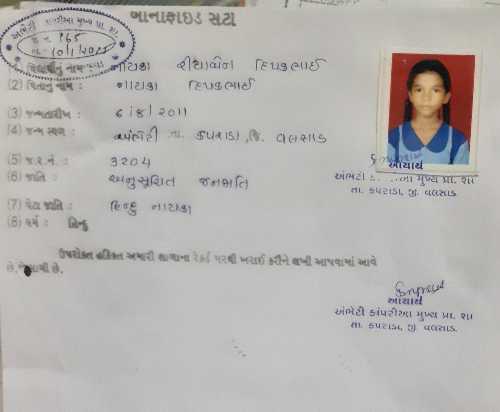 બોનાફાઇડ સર્ટી
અંભેટી કાંપરીઆ મુખ્ય પ્રા. શા.
જા.નં. 165
તા. 10/1/2025
(1) વિદ્યાર્થીનું નામ : નાયકા રીયાબેન દિપકભાઈ
(2) પિતાનું નામ : નાયકા દિપકભાઈ
(3) જન્મતારીખ : 6/8/2011
(4) જન્મ સ્થળ : અંભેટી તા. કપરાડા, જિ. વલસાડ
(5) જ.ર.નં. : 3204
(6) જાતિ : અનુસૂચિત જનજાતિ
(7) પેટા જાતિ : હિન્દુ નાયકા
(8) ધર્મ : હિન્દુ
આચાર્ય
અંભેટી કાંપરીઆ મુખ્ય પ્રા. શા
તા. કપરાડા, જી. વલસાડ.
ઉપરોક્ત હકિકત અમારી શાળાના રેકર્ડ પરથી ખરાઈ કરીને લખી આપવામાં આવે
છે, જે સાચી છે.
આચાર્ય
અંભેટી કાંપરીઆ મુખ્ય પ્રા. શા
તા. કપરાડા, જી. વલસાડ.